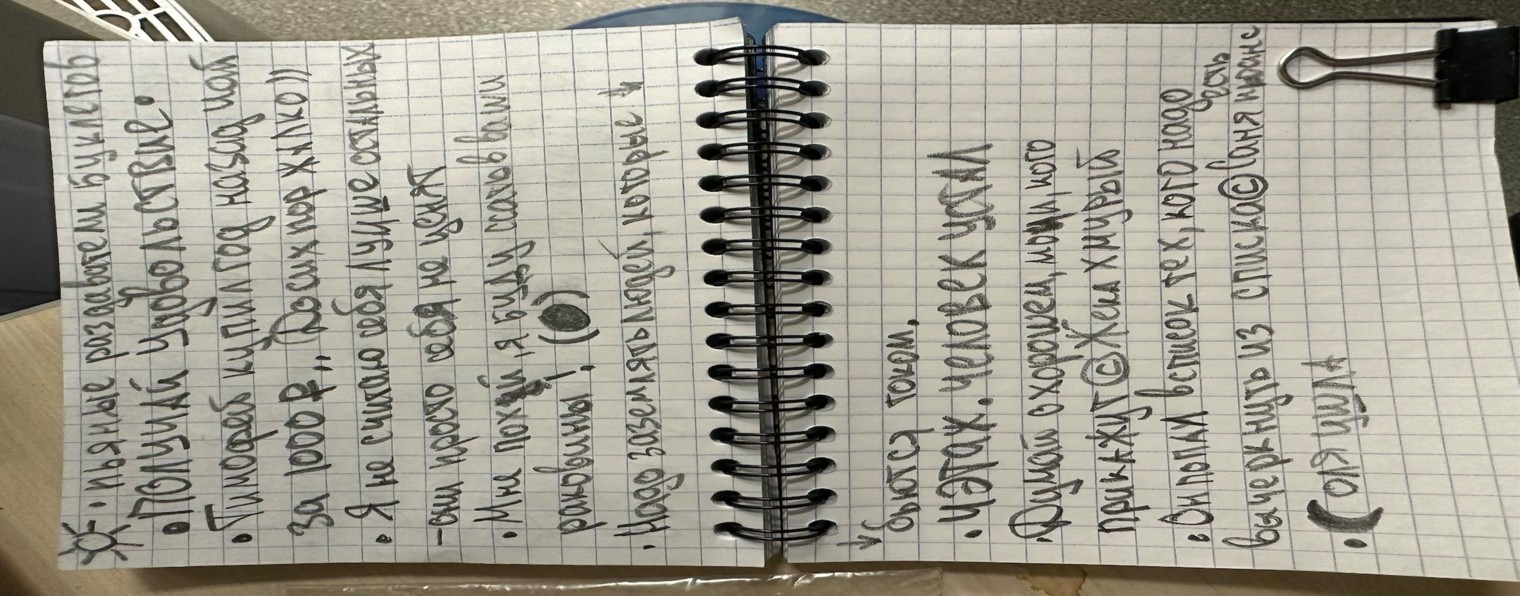 · пьяные раздаватели буклетов
· ПОЛУЧАЙ УДОВОЛЬСТВИЕ.
· Тимофей купил год назад чай
за 1000 ₽,, (До сих пор жалко))
· Я не считаю себя лучше остальных
- они просто себя не ценят
· Мне пох*й, я буду ссать в ваши
раковины!. ( )
· Надо заземлять людей, которые ↓
↓ бьются током.
· ЦЭТАХ. ЧЕЛОВЕК УСТАЛ
· Думай о хорошем, мочи, кого
прикажут © Жека хмурый
· Он попал в список тех, кого надо
вычеркнуть из списка © Саня нюанс
есть
· ( ОЛЯ ЦИЛА